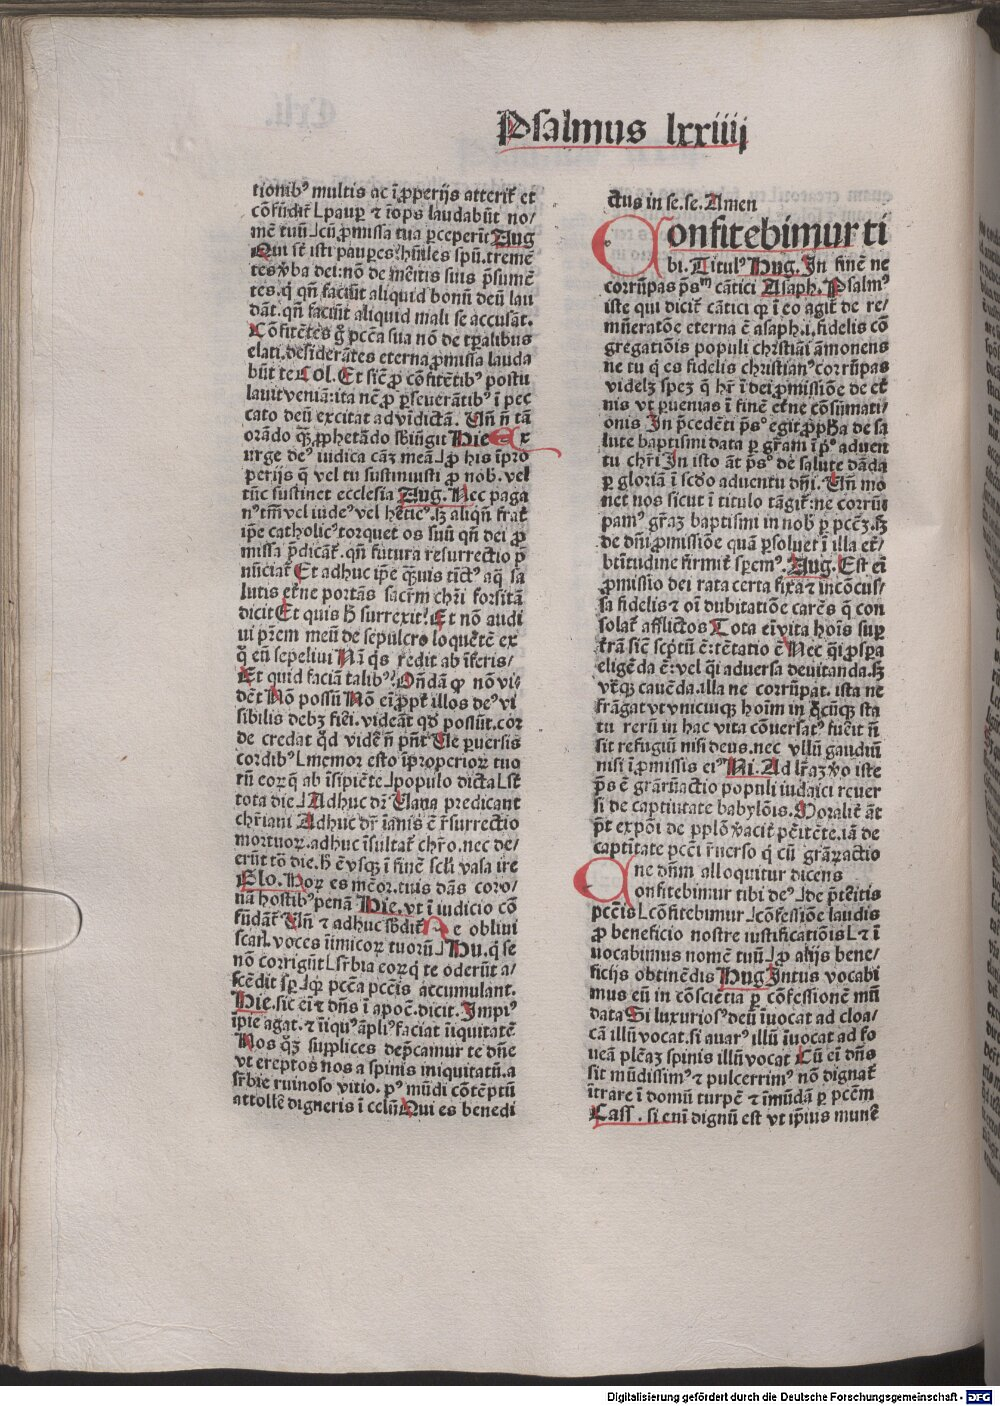 Psalmus lxxiiij
tionibꝰ multis ac ĩproperijs atterit̃ et
cõfũdit̃ Lpaup̃ ⁊ ĩops laudabũt no/
mẽ tuũ⅃cũ ꝓmissa tua ꝑceperĩt Aug
Qui sũt isti pauꝑes? hũiles spũ. tremẽ
tes ꝟba dei: nõ de mẽitis suis p̃sumẽ
tes. q̃ qñ faciũt aliquid bonũ deũ lau
dãt. qñ faciũt aliquid mali se accusãt.
Cõfitẽtes g̃ pctã sua nõ de tp̃alibus
elati. desiderãtes eterna ꝓmissa lauda
bũt te Col. Et sic̃ ꝓ cõfitẽtibꝰ postu
lauit veniã: ita nẽ ꝓ ꝑseverãtibꝰ ĩ pec
cato deũ excitat ad vĩdictã. Uñ ñ tã
orãdo qꝫ ꝓphetãdo sbĩngit Hie Ex
urge deꝰ iudica cãꝫ meã⅃ꝓ his ĩpro
perijs q̃ vel tu sustinuisti ꝓ nob. vel
tũc sustinet ecclesia Aug. Nec paga
nꝰ tm̃ vel iudeꝰ vel heticꝰ. sꝫ aliqñ frat̃
ip̃e catholicꝰ torquet os suũ qñ dei ꝓ
missa p̃dicãt̃. qñ futura resurrectio p̃
nũciat̃ Et adhuc ip̃e qꝫuis tĩctꝰ aq̃ sa
lutis et̃ne portãs sacr̃m chr̃i forsitã
dicit Et quis h̃ surrexit? Et nõ audi
ui p̃rem meũ de sepulcro loquẽtẽ ex
q̃ eũ sepeliui Nã q̃s redit ab ĩferis/
Et quid faciã talibꝰ? Oñdã ꝙ nõ vi/
dẽt Nõ possũ Nõ eĩ ꝓpt̃ illos deꝰ vi
sibilis debꝫ fiẽi. videãt qd̃ possũt. cor
de credat qd̃ vidẽe ñ pñt Ue ꝑuersis
cordibꝰ Lmemor esto ĩproperioꝝ tuo
rũ eoꝝ q̃ ab ĩsipiẽte⅃populo dicta Lst̃
tota die⅃Adhuc dr̃ Uana predicant
chr̃iani Adhuc dr̃ ĩanis ẽ r̃surrectio
mortuoꝝ. adhuc ĩsultat̃ chr̃o. nec de/
erũt tõ die. h̃ ẽ vsqꝫ ĩ finẽ scl̃i vasa ire
Glo. Noꝝ es mẽor. tuis dãs coro/
nã hostibꝰ penã Hie. vt ĩ iudicio cõ
fũdãt̃ Uñ ⁊ adhuc sb̃dit̃ Ne oblivi
scarl. voces ĩimicoꝝ tuorũ⅃ Hu. q̃ se
nõ corrigũt Lsr̃bia eoꝝ q̃ te oderũt a/
scẽdit sp̃⅃ꝙ pctã pctĩs accumulant.
Hie. sic eĩ ⁊ dñs ĩ apoc̃. dicit. Impiꝰ
ĩpie agat. ⁊ ĩiqꝰ ãpliꝰ faciat ĩiquitatẽ
Nos q̃ꝫ supplices dep̃camur te dñe
vt ereptos nos a spinis iniquitatũ. a
sr̃bie ruinoso vitio. pꝰ mũdi cõtẽptũ
attollẽ digneris ĩ celũ Qui es benedi
ctus in se. se. Amen
Confitebimur ti
bi. Titulꝰ Hug. In finẽ ne
corrũpas p̃sᵐ cãtici Asaph. Psalmꝰ
iste qui dicit̃ cãtici qꝛ ĩ eo agit̃ de re/
mũeratõe eterna ẽ asaph. i. fidelis cõ
gregatiõis populi chrstiãi ãmonens
ne tu q̃ es fidelis christianꝰ corrũpas
videlꝫ speꝫ q̃ hr̃ ĩ dei ꝓmissiõe de et̃
nis vt ꝑuenias ĩ finẽ et̃ne cõsũmati/
onis In p̃cedẽti p̃sᵒ egit ꝓph̃a de sa
lute baptismi data ꝑ gr̃am ĩ p̃ᵒ aduen
tu chr̃i In isto ãt p̃sᵒ de salute dãda
ꝑ gloriã ĩ scd̃o aduentu dñi. Uñ mo
net nos sicut ĩ titulo tãgit̃: ne corrũ
pamꝰ gr̃aꝫ baptismi in nob̃ ꝑ pctꝫ. sꝫ
de dñi ꝓmissiõe quã ꝑsoluet ĩ illa et̃/
btĩtudine fir̃mit̃ sꝑemꝰ. Aug. Est eĩ
ꝓmissio dei rata certa fixa ⁊ incõcus/
sa fidelis ⁊ oĩ dubitatiõe carẽs q̃ con
solat̃ afflictos Tota eĩ vita hoĩs suꝑ
tr̃ã sic̃ sc̃ptũ ẽ: tẽtatio ẽ Nec q̃i ꝓsꝑa
eligẽda ẽ: vel q̃i adversa deuitanda. sꝫ
vt̃qꝫ cauẽda. illa ne corrũpat. ista ne
frãgat vt vnicuiqꝫ hoĩm in q̃cũqꝫ sta
tu rerũ in hac vita cõuersatꝰ fuẽit ñ
sit refugiũ nisi deus. nec vllũ gaudiũ
nisi ĩ ꝓmissis eiꝰ Ni. Ad lr̃aꝫ ꝟo iste
p̃s ẽ grãrũactio populi iudaici reuer
si de captiuitate babylõis. Moralit̃ ãt
p̃t expõi de pp̃lo ꝟacit̃ pẽitẽte. iã de
captĩtate pctĩ r̃uerso q̃ cũ grãꝝactio
ne dñm alloquitur dicens
Confitebimur tibi deꝰ⅃de p̃tẽitis
pctĩs Lcõfitebimur⅃cõfessiõe laudis
ꝓ beneficio nostre iustificatiõis L⁊ ĩ
uocabimus nomẽ tuũ⅃ꝓ alijs bene/
ficijs obtinẽdis Hug Intus vocabi
mus eũ in cõsciẽtia ꝑ cõfessionẽ mũ
data Si luxuriosꝰ deũ ĩuocat ad cloa/
cã illũ vocat. si auarꝰ illũ ĩuocat ad fo
ueã plẽaꝫ spinis illũ vocat Cũ eĩ dñs
sit mũdissimꝰ ⁊ pulcerrimꝰ nõ dignat̃
ĩtrare ĩ domũ turpẽ ⁊ ĩmũdã ꝑ pctẽm
Cass. si enĩ dignũ est vt ip̃ius munẽ
Digitalisierung gefördert durch die Deutsche Forschungsgemeinschaft - DFG